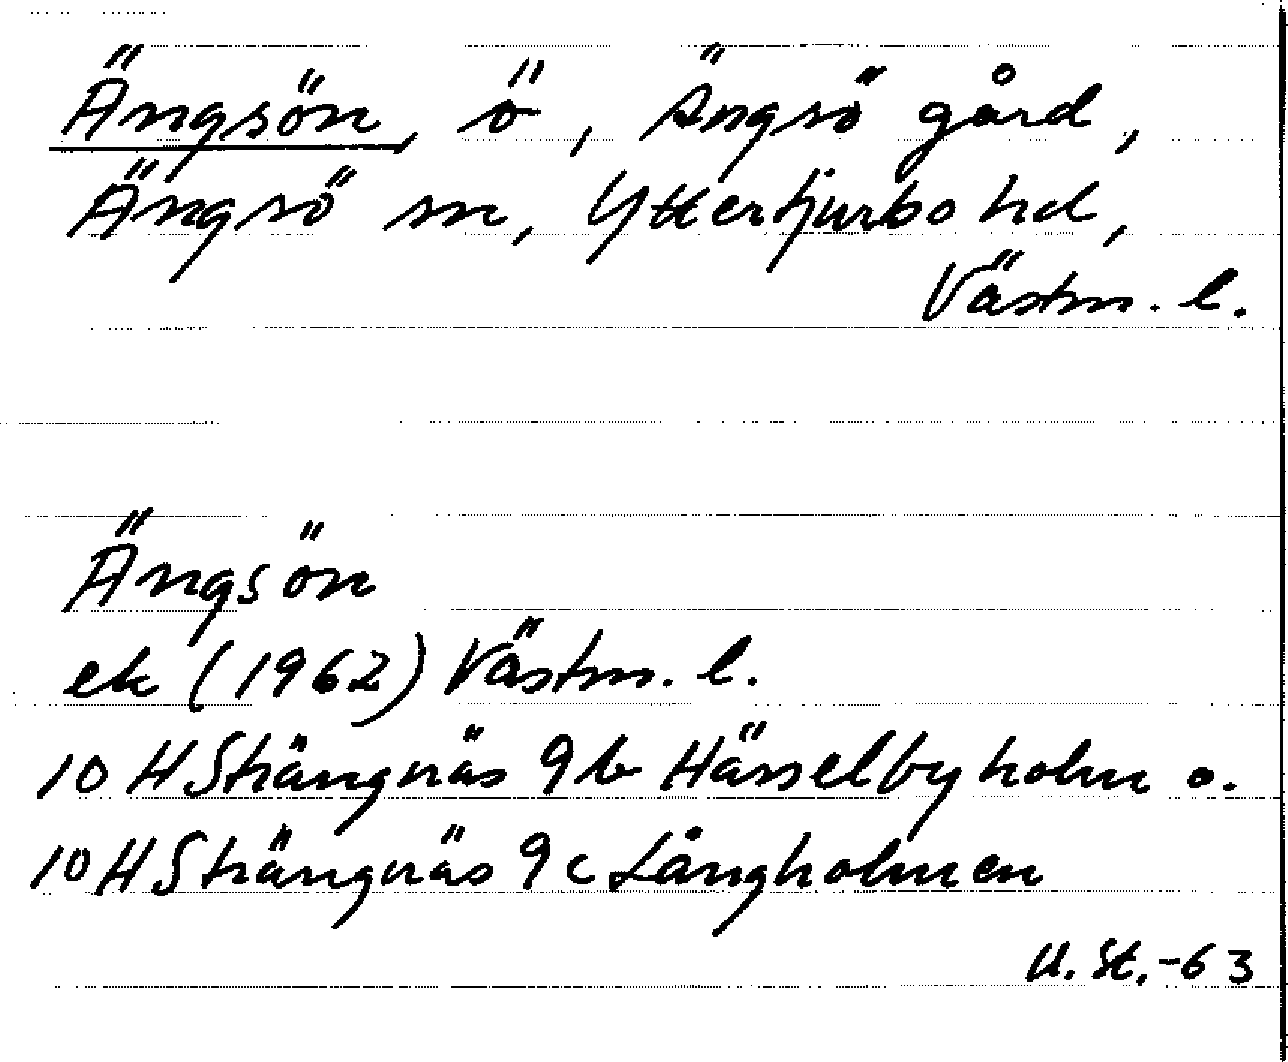 Ängsön, ö, Ängsö gård,
Ängsö sn, Yttertjurbo hd,
Västm. l.
Ängsön
ek (1962) Västm. l.
10 H Strängnäs 9b Hässelbyholm o.
10 H Strängnäs 9c Långholmen
U. St. -63